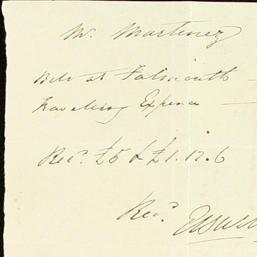 Mr. Martinez
Bill at Falmouth —
Travelling Expence —
Rec.d £5 & £1.17.6
Rec.d